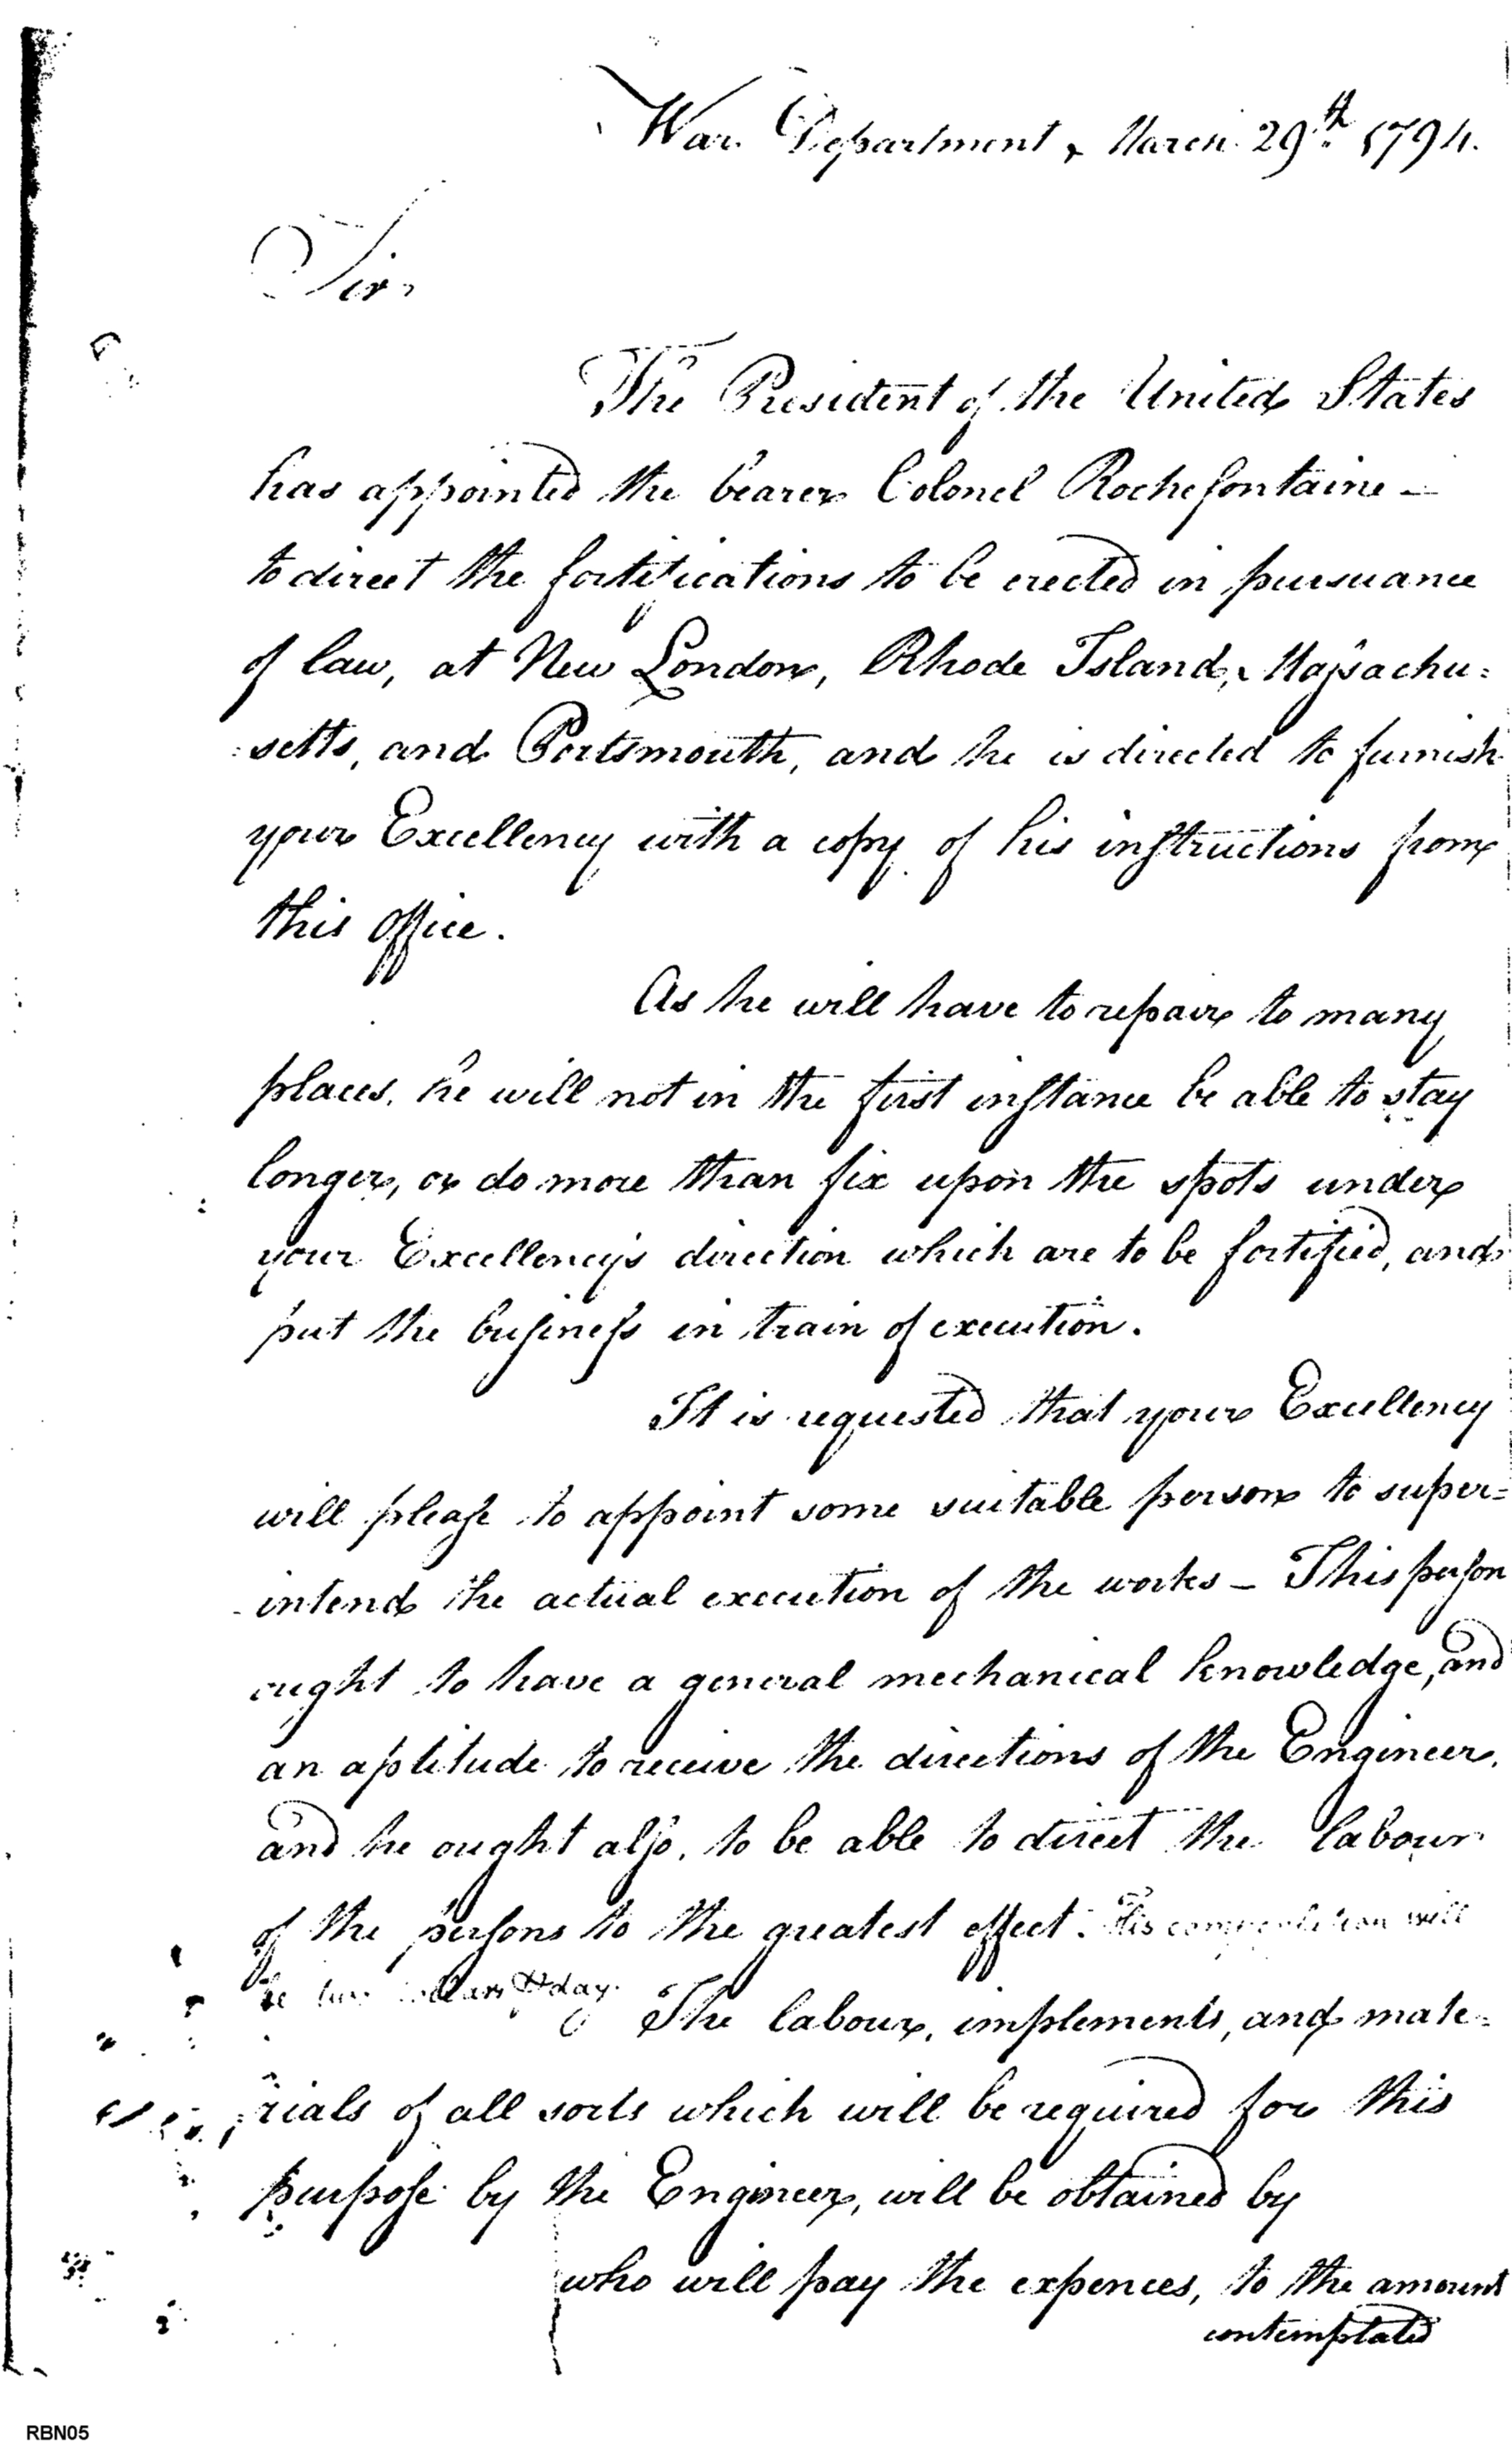 War Department, March 29th 1794.
Sir,
The President of the United States
has appointed the bearer Colonel Rochefontaine —
to direct the fortifications to be erected in pursuance
of law, at New London, Rhode Island, Massachu=
=setts, and Portsmouth, and he is directed to furnish
your Excellency with a copy of his instructions from
this office.
As he will have to repair to many
places, he will not in the first instance be able to stay
longer, or do more than fix upon the spots under
your Excellency's direction which are to be fortified, and
put the business in train of execution.
It is requested that your Excellency
will please to appoint some suitable person to super=
-intend the actual execution of the works — This person
ought to have a general mechanical knowledge, and
an aptitude to receive the directions of the Engineer,
and he ought also, to be able to direct the labour
of the persons to the greatest effect. His compensation will
be two dollars ⅌ day.
The labour, implements, and mate=
=rials of all sorts which will be required for this
purpose by the Engineer, will be obtained by
who will pay the expences, to the amount
contemplated
RBN05